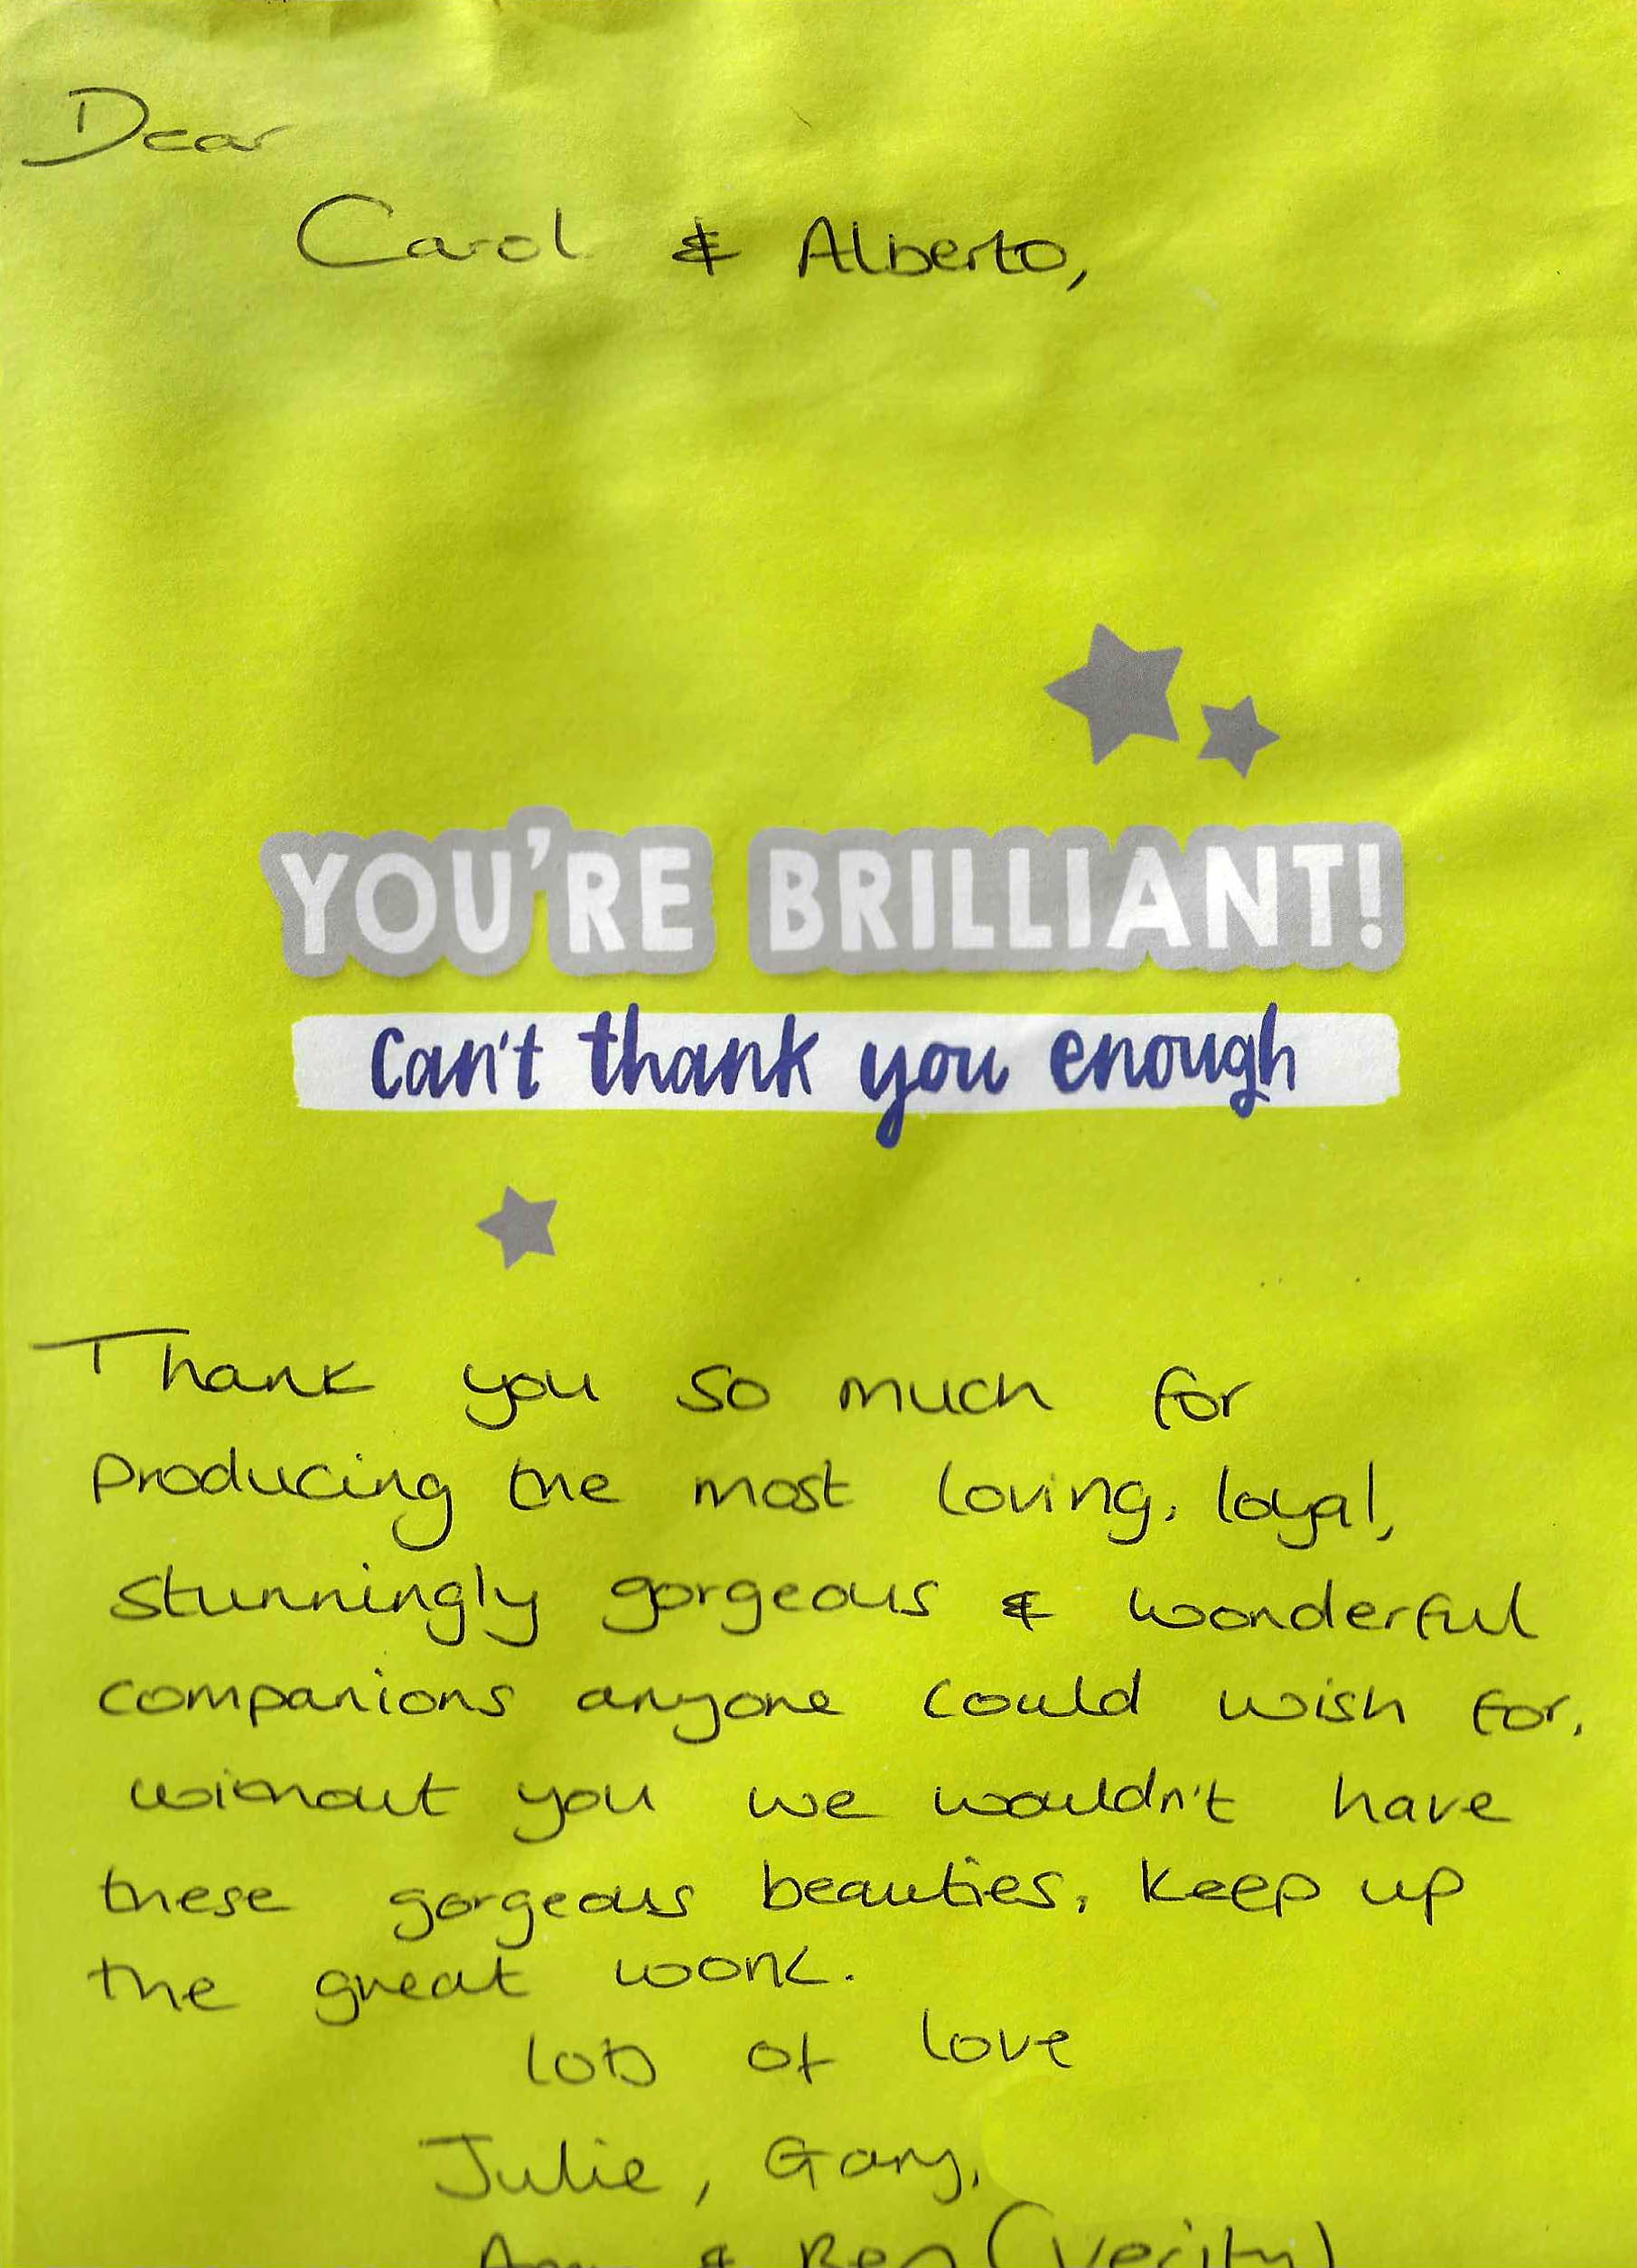 Dear
Carol & Alberto,
YOU'RE BRILLIANT!
Can't thank you enough
Thank you so much for
producing the most loving, loyal,
stunningly gorgeous & wonderful
companions anyone could wish for,
without you we wouldn't have
these gorgeous beauties, keep up
the great work.
lots of love
Julie, Gary,
& Ben (Verity)